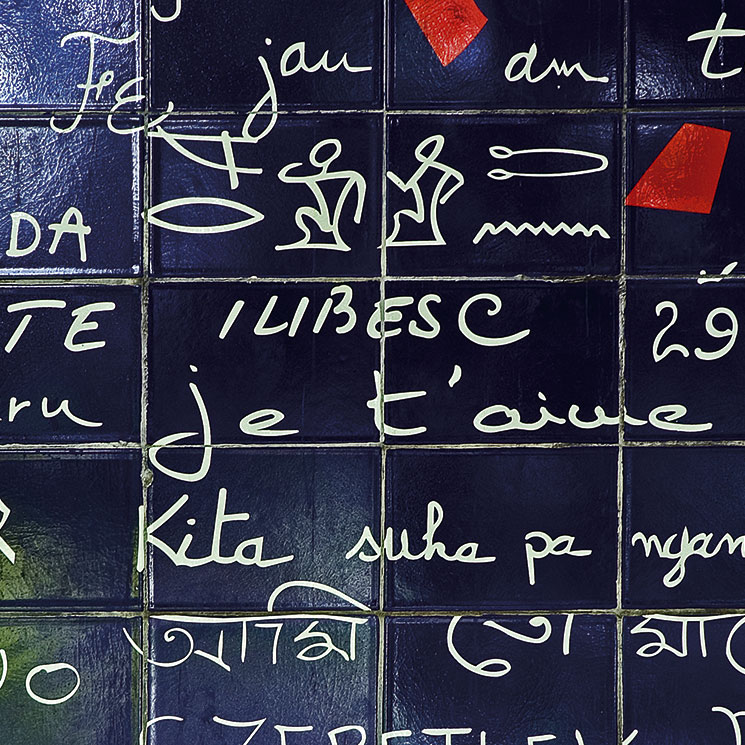 jau dm t
DA
TE ILIBESC 29
ru je t'aime
Kita suka pa ngan
আমি তো মা
SZERETLEK